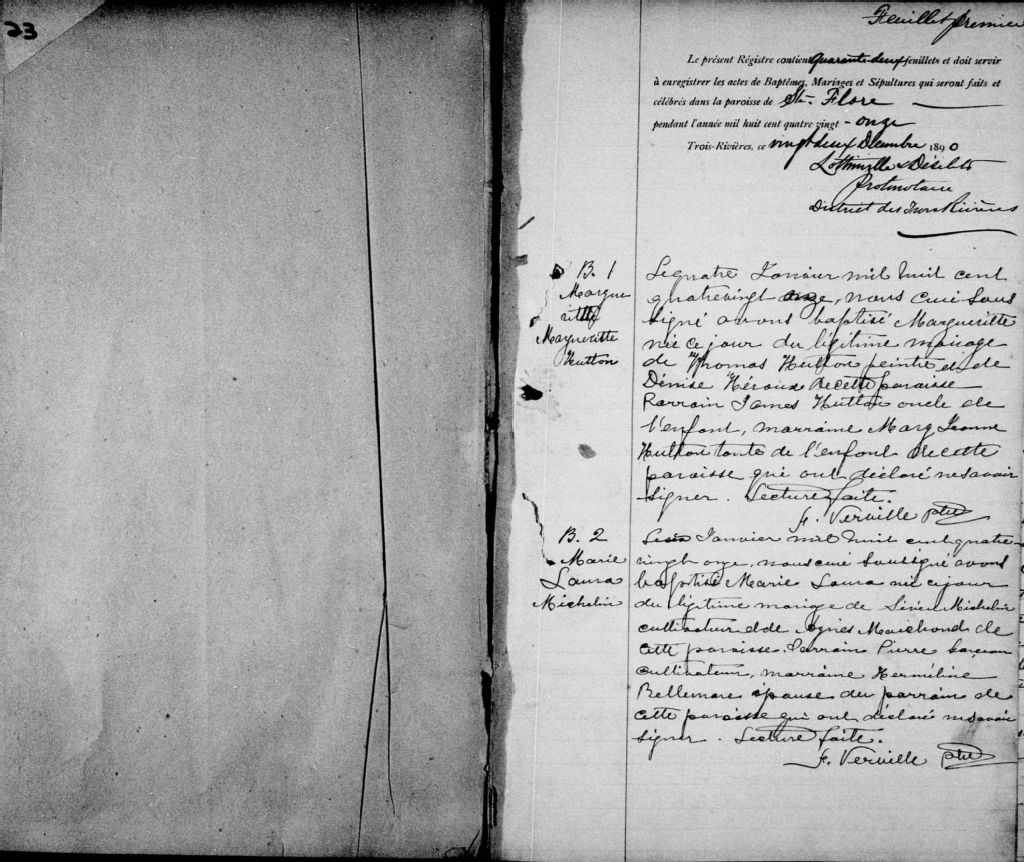 23
Feuillet premier
Le présent Régistre contient quarante-deux feuillets et doit servir
à enregistrer les actes de Baptêmes, Mariages et Sépultures qui seront faits et
célébrés dans la paroisse de Ste. Flore
pendant l'année mil huit cent quatre vingt - onze
Trois-Rivières, ce vingt deux Décembre 1890
Lottinville & Désilets
Protonotaire
District des Trois Rivières
B. 1
Margue
ritte
Margueritte
Hutton
Le quatre Janvier mil huit cent
quatrevingt onze, nous curé sous
signé avons baptisé Margueritte
née ce jour du légitime mariage
de Thomas Hutton peintre et de
Dénise Héroux de cette paroisse
Parrain James Hutton oncle de
l'enfant, marraine Mary Jeanne
Hutton tante de l'enfant de cette
paroisse qui ont déclaré ne savoir
signer. Lecture faite.
F. Verville ptre
B. 2
Marie
Laura
Michelin
Le six Janvier mil huit cent quatre
vingt onze, nous curé soussigné avons
baptisé Marie Laura née ce jour
du légitime marige de Sévère Michelin
cultivateur et de Agnès Marchand de
cette paroisse. Parrain Pierre
cultivateur, marraine Herméline
Bellemare épouse du parrain de
cette paroisse qui ont déclaré ne savoir
signer. Lecture faite.
F. Verville ptre